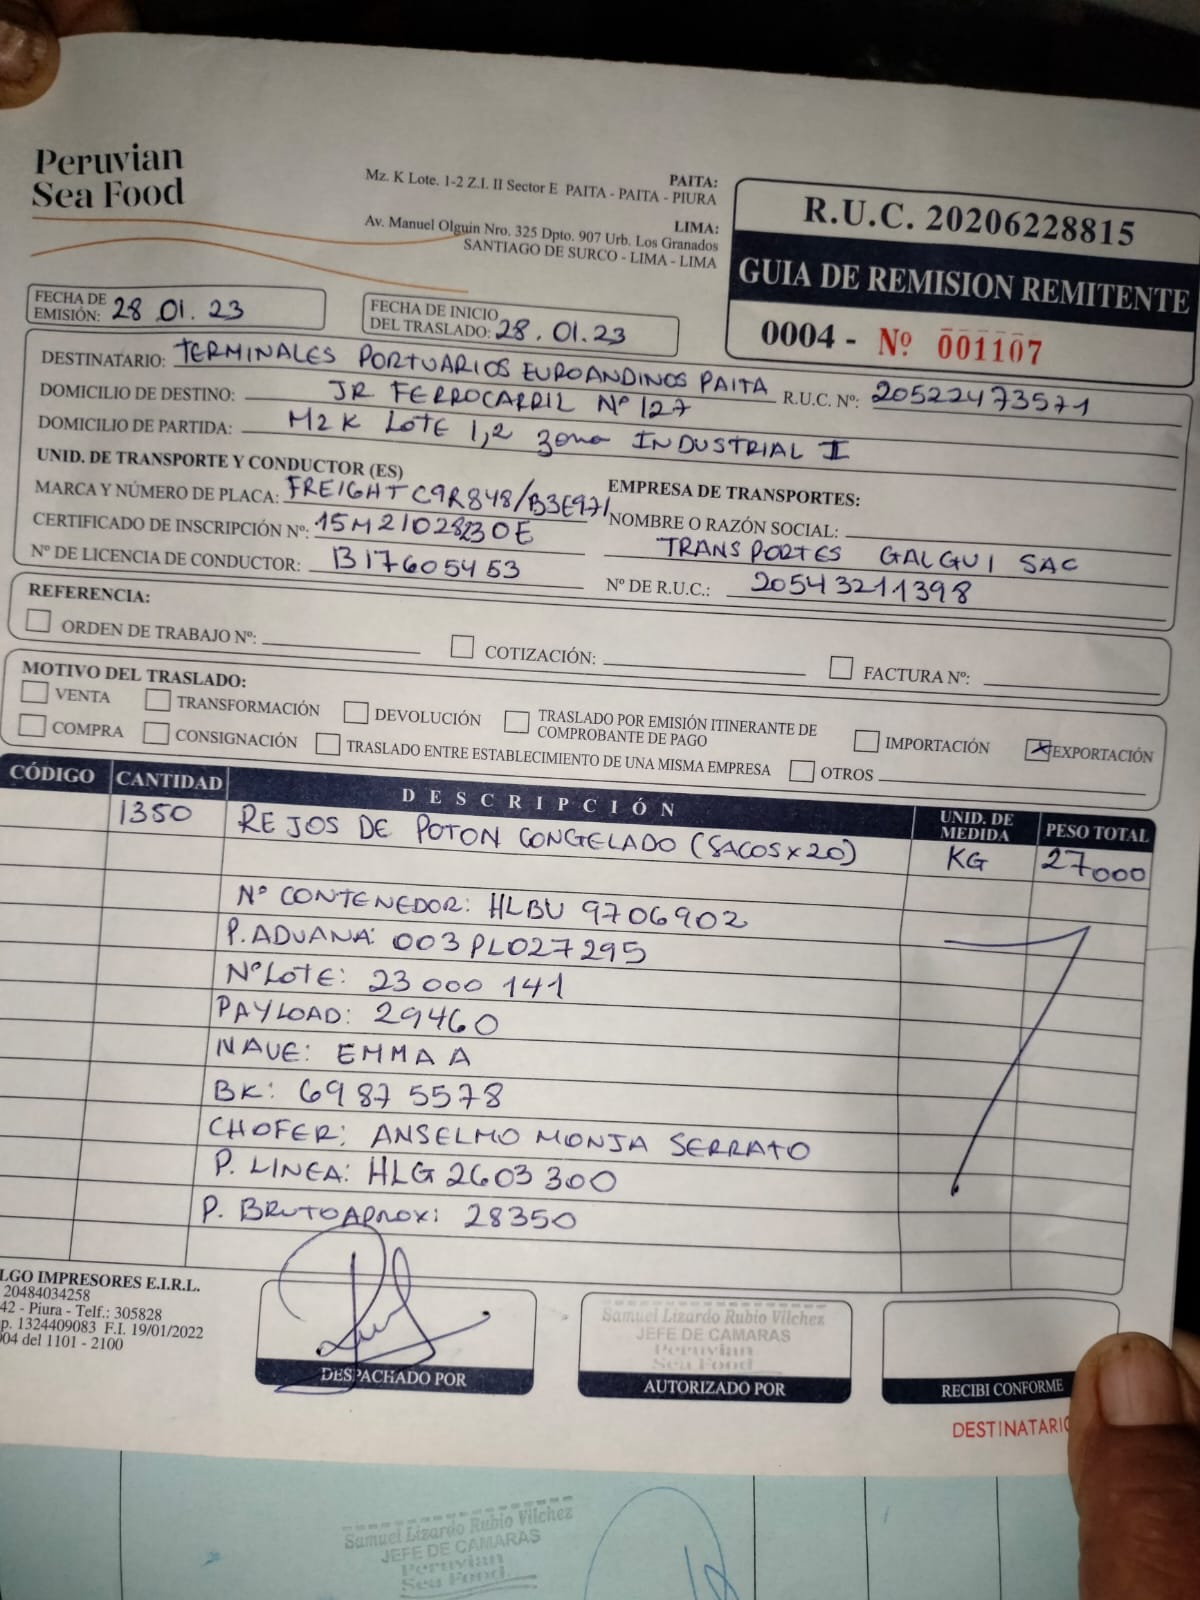 Peruvian
Sea Food
PAITA:
Mz. K Lote. 1-2 Z.I. II Sector E PAITA - PAITA - PIURA
LIMA:
Av. Manuel Olguin Nro. 325 Dpto. 907 Urb. Los Granados
SANTIAGO DE SURCO - LIMA - LIMA
R.U.C. 20206228815
GUIA DE REMISION REMITENTE
0004 - Nº 001107
FECHA DE EMISIÓN: 28.01.23
FECHA DE INICIO DEL TRASLADO: 28.01.23
DESTINATARIO: TERMINALES PORTUARIOS EUROANDINOS PAITA R.U.C. Nº: 20522473571
DOMICILIO DE DESTINO: JR FERROCARRIL Nº 127
DOMICILIO DE PARTIDA: MZ K LOTE 1,2 zona INDUSTRIAL II
UNID. DE TRANSPORTE Y CONDUCTOR (ES)
MARCA Y NÚMERO DE PLACA: FREIGHT C9R848/B3E971
CERTIFICADO DE INSCRIPCIÓN Nº:
Nº DE LICENCIA DE CONDUCTOR: B17605453
EMPRESA DE TRANSPORTES:
NOMBRE O RAZÓN SOCIAL:
TRANSPORTES GALGUI SAC
Nº DE R.U.C.: 20543211398
REFERENCIA:
ORDEN DE TRABAJO Nº: COTIZACIÓN: FACTURA Nº:
MOTIVO DEL TRASLADO:
VENTA TRANSFORMACIÓN DEVOLUCIÓN TRASLADO POR EMISIÓN ITINERANTE DE COMPROBANTE DE PAGO IMPORTACIÓN X EXPORTACIÓN
COMPRA CONSIGNACIÓN TRASLADO ENTRE ESTABLECIMIENTO DE UNA MISMA EMPRESA OTROS
CÓDIGO CANTIDAD DESCRIPCIÓN UNID. DE MEDIDA PESO TOTAL
1350 REJOS DE POTON CONGELADO (SACOS x 20) KG 27000
Nº CONTENEDOR: HLBU 9706902
P. ADUANA: 003PL027295
Nº LOTE: 23 000 141
PAYLOAD: 29460
NAVE: EMMA A
BK: 6987 5578
CHOFER: ANSELMO MONJA SERRATO
P. LINEA: HLG 2603 300
P. BRUTO APROX: 28350
LGO IMPRESORES E.I.R.L.
20484034258
42 - Piura - Telf.: 305828
p. 1324409083 F.I. 19/01/2022
004 del 1101 - 2100
DESPACHADO POR
Samuel Lizardo Rubio Vilchez
JEFE DE CAMARAS
Peruvian
Sea Food
AUTORIZADO POR
RECIBI CONFORME
DESTINATARIO
Samuel Lizardo Rubio Vilchez
JEFE DE CAMARAS
Peruvian
Sea Food